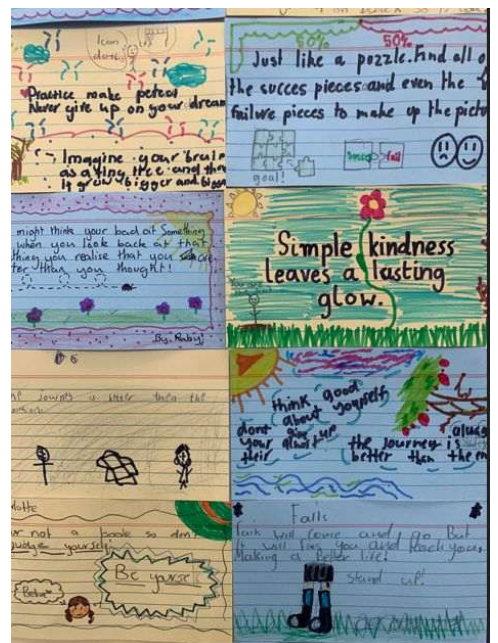 I can
Practice make petect
Never give up on your dream
Imagine your brain
as a tiny tree and then
it grows bigger and bigg
50% 50%
Just like a pozzle. Find all o
the succes pieces and even the
failure pieces to make up the pictu
goal!
fail
might think your bad at Something
when you look back at that
thing you realise that you
ter than you thought!
By. Ruby!
Simple kindness
leaves a lasting
glow.
journey is beter then the
think good
about yourself
dont give up
your always
their
the journey is
better then the en
lotte
ur not a so dnt
judge yourself
Be yourse
Falls
will come and go. But
it will and teach you
Making a Better life!
Stand up!